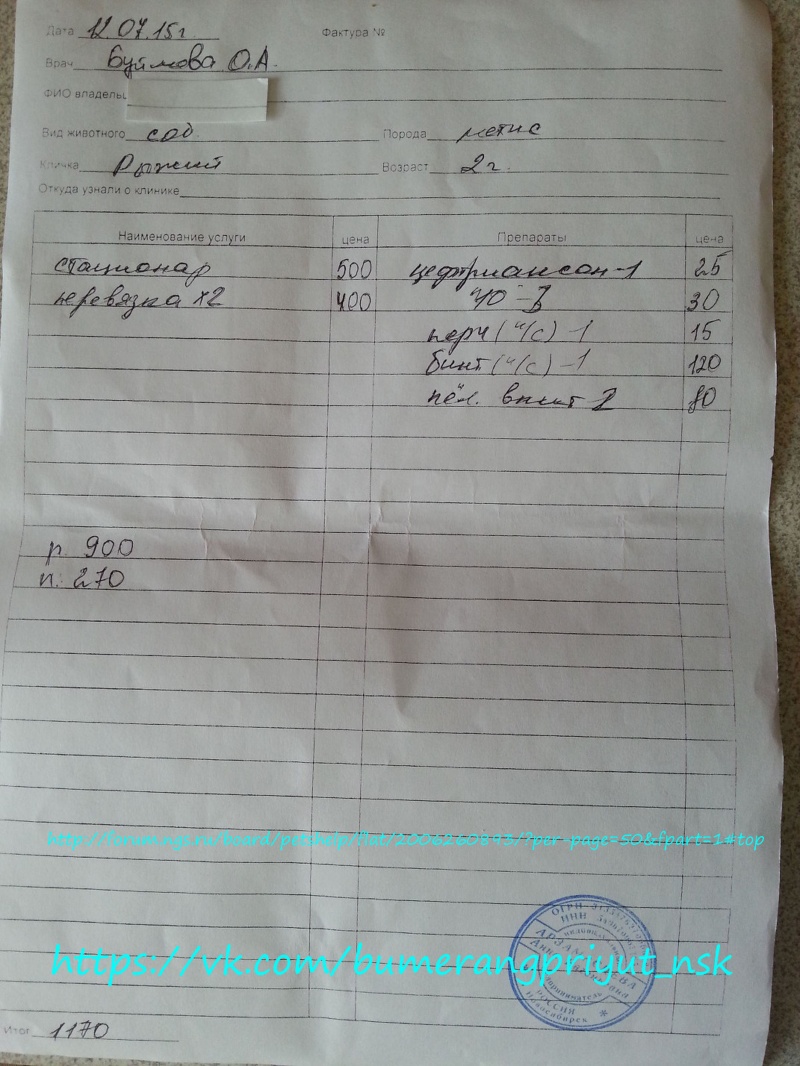 Дата 12.07.15г. Фактура №
Врач Буймова О.А.
ФИО владельц
Вид животного соб. Порода метис
Кличка Рыжий Возраст 2г.
Откуда узнали о клинике
Наименование услуги цена Препараты цена
стационар 500 цефтриаксон-1 25
перевязка х2 400 30
перч (н/с) -1 15
бинт (н/с) -1 120
пел. впит 2 80
р. 900
п. 270
http://forum.ngs.ru/board/petshelp/flat/2006260893/?per-page=50&fpart=1#top
ОГРН
ИНН
https://vk.com/bumerangpriyut_nsk
РОССИЯ
Новосибирск
Итог 1170